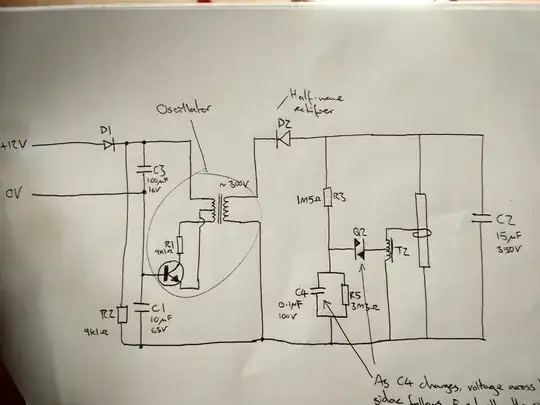 Half-wave
rectifier
Oscillator
D1
D2
+12V
C3
100µF
16V
~300V
0V
1M5Ω
R3
R1
9k1Ω
Q2
T2
C2
15µF
350V
C4
0.1µF
100V
R5
3M3Ω
R2
9k1Ω
C1
10µF
63V
As C4 charges, voltage across
sidac follows.